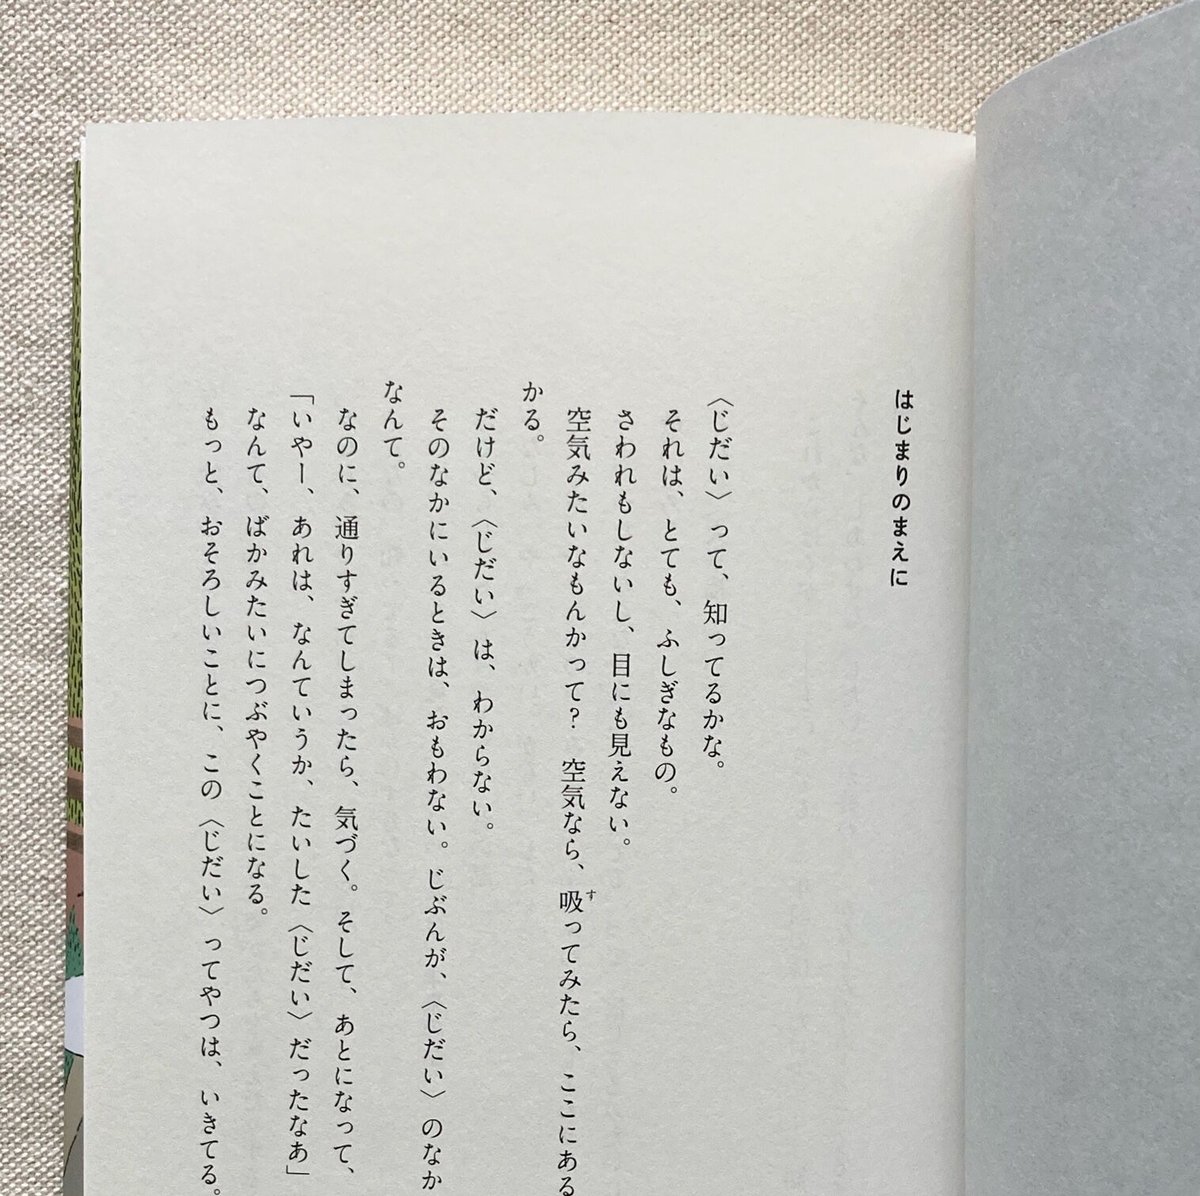 はじまりのまえに
〈じだい〉って、知ってるかな。
それは、とても、ふしぎなもの。
さわれもしないし、目にも見えない。
空気みたいなもんかって? 空気なら、吸ってみたら、ここにある
かる。
だけど、〈じだい〉は、わからない。
そのなかにいるときは、おもわない。じぶんが、〈じだい〉のなか
なんて。
なのに、通りすぎてしまったら、気づく。そして、あとになって、
「いやー、あれは、なんていうか、たいした〈じだい〉だったなあ」
なんて、ばかみたいにつぶやくことになる。
もっと、おそろしいことに、この〈じだい〉ってやつは、いきてる。